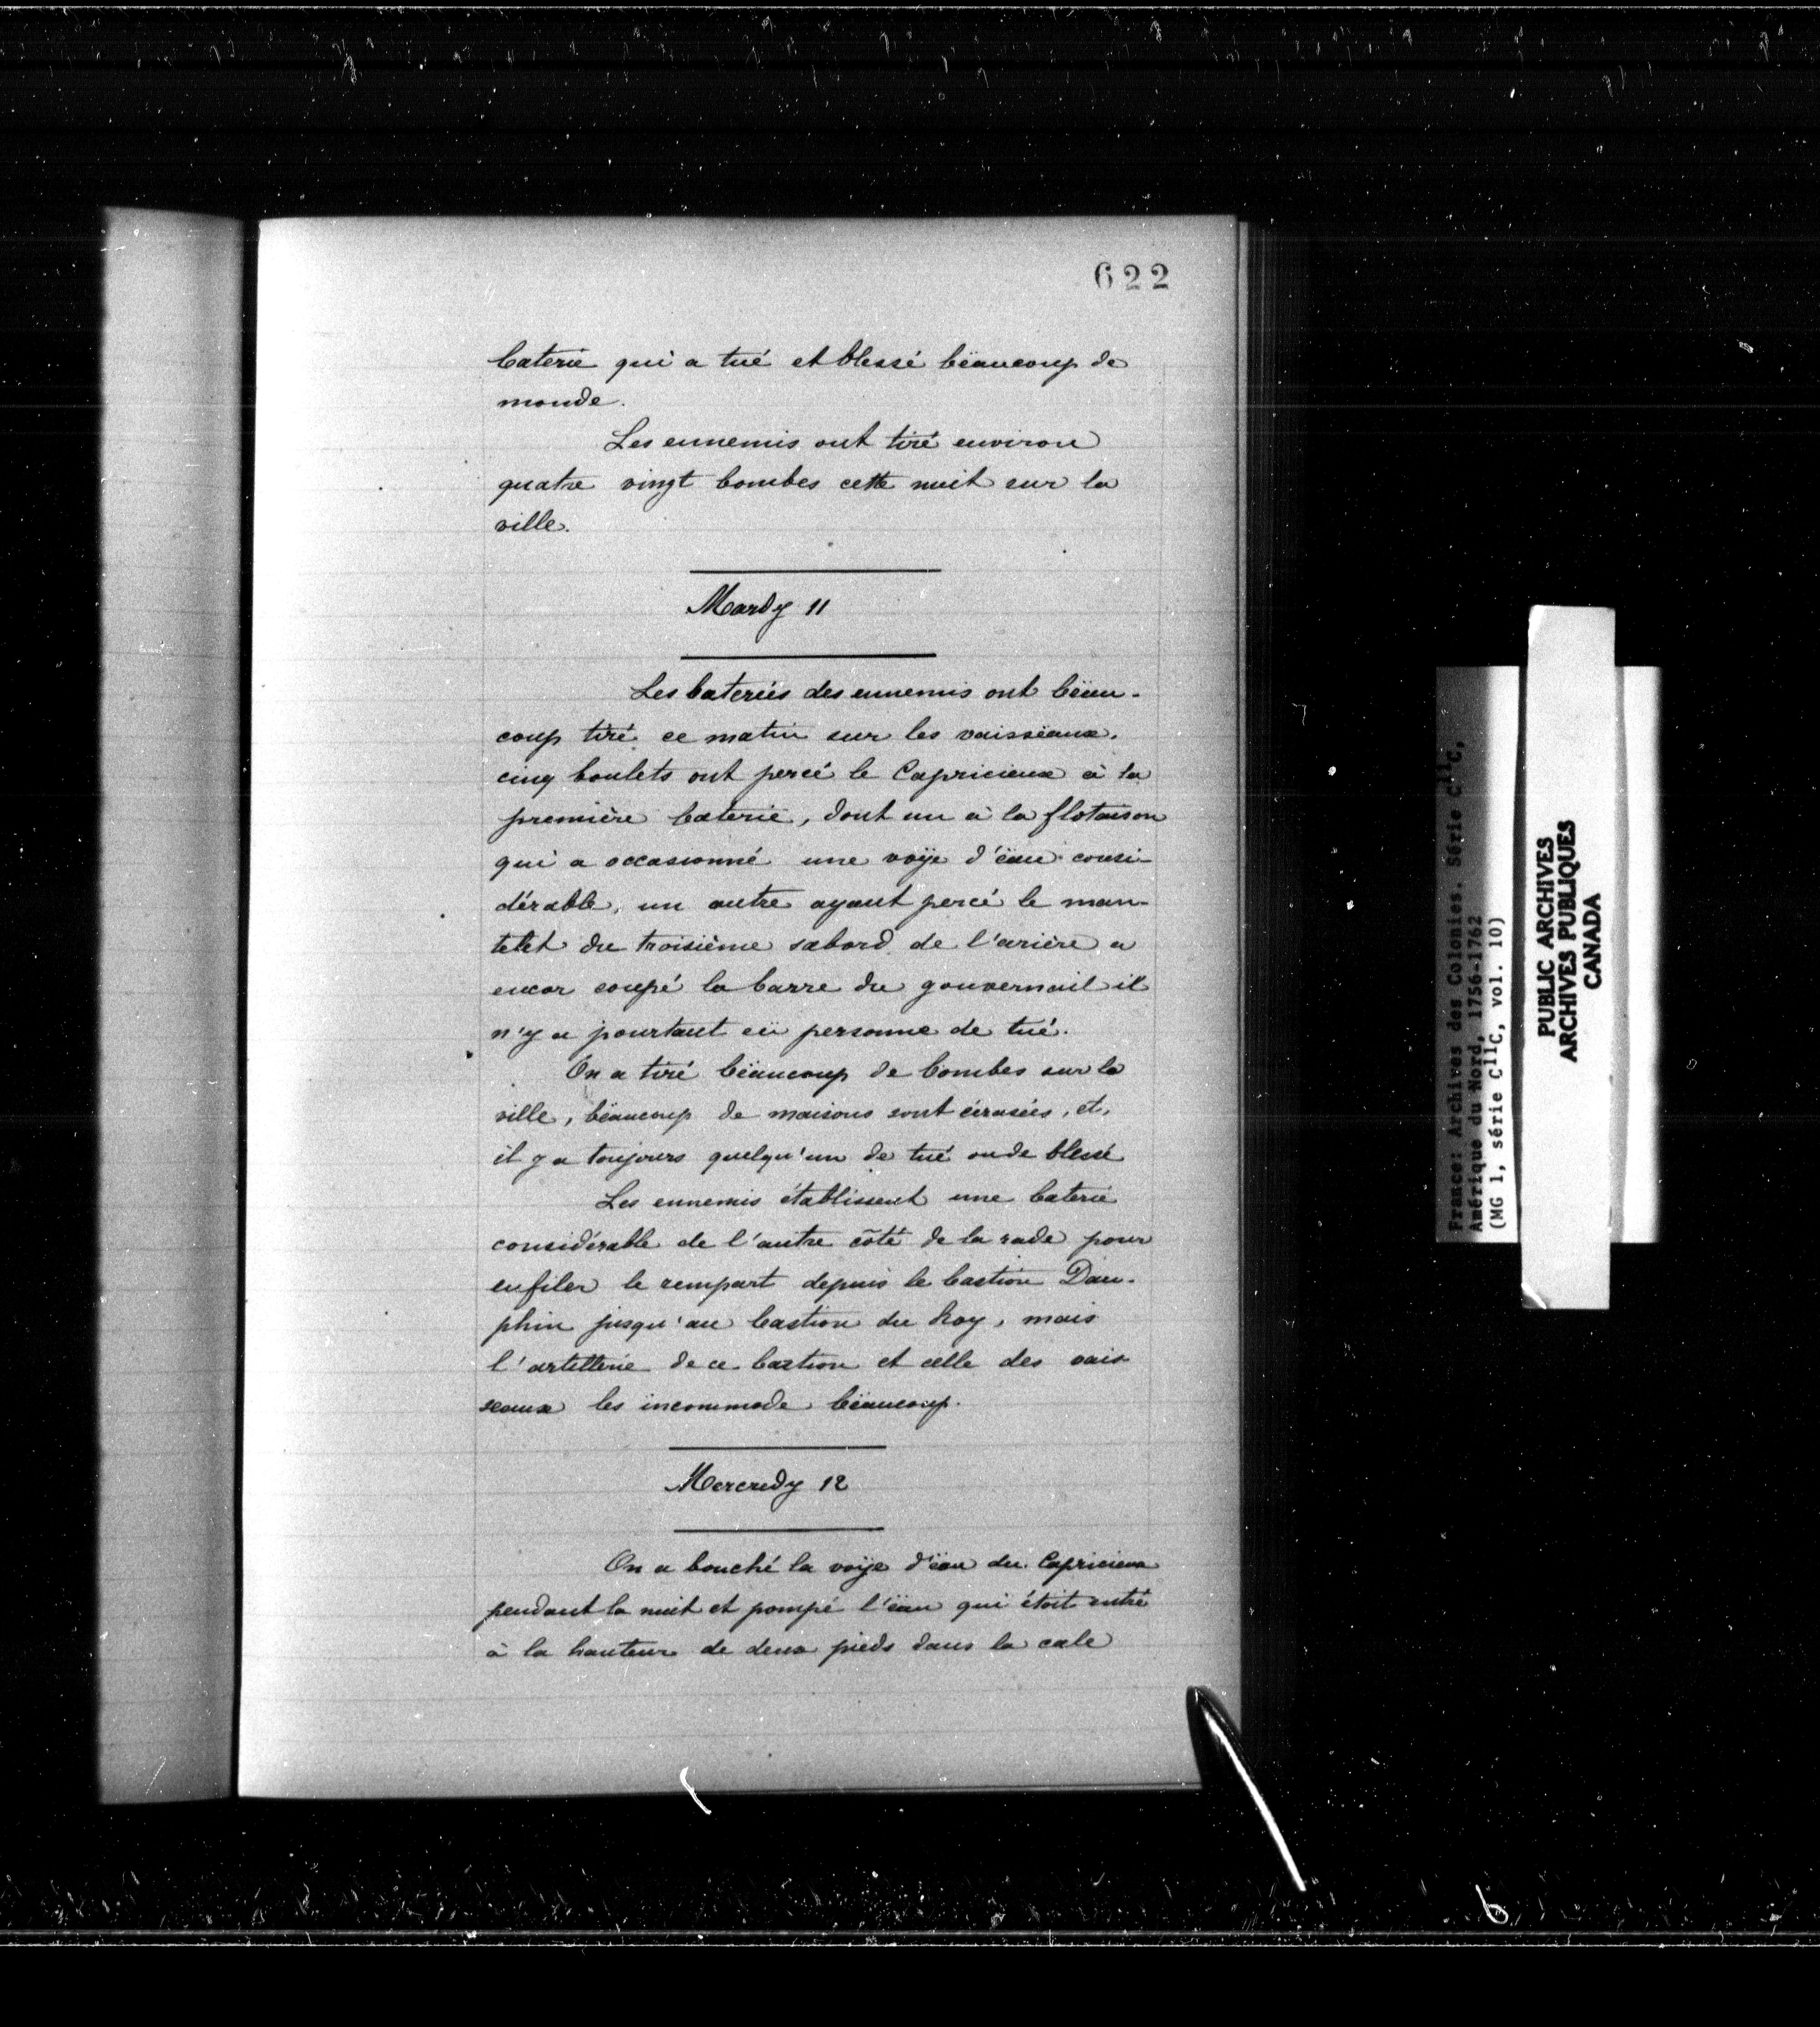 622
baterie qui a tué et blessé bëaucoup de
monde.
Les ennemis ont tiré environ
quatre vingt bombes cette nuit sur la
ville.
Mardy 11
Les bateries des ennemis ont bëau-
coup tiré ce matin sur les vaissëaux.
cinq boulets ont percé le Capricieux à la
première baterie, dont un à la flotaison
qui a occasionné une voÿe d'ëau consi-
dérable, un autre ayant percé le man-
telet du troisième sabord de l'arière a
encor coupé la barre du gouvernail il
n'y a pourtant eü personne de tué.
On a tiré bëaucoup de bombes sur la
ville, bëaucoup de maisons sont écrasées, et,
il y a toujours quelqu'un de tué ou de blessé
Les ennemis établissent une baterie
considérable de l'autre côté de la rade pour
enfiler le rempart depuis le bastion Dau-
phin jusqu'au bastion du Roy, mais
l'artillerie de ce bastion et celle des vais
seaux les incommode bëaucoup.
Mercredy 12
On a bouché la voÿe d'ëau du Capricieux
pendant la nuit et pompé l'ëau qui étoit entré
à la hauteur de deux pieds dans la cale
France: Archives des Colonies. Série C11C,
Amérique du Nord, 1756-1762
(MG 1, série C11C, vol. 10)
PUBLIC ARCHIVES
ARCHIVES PUBLIQUES
CANADA